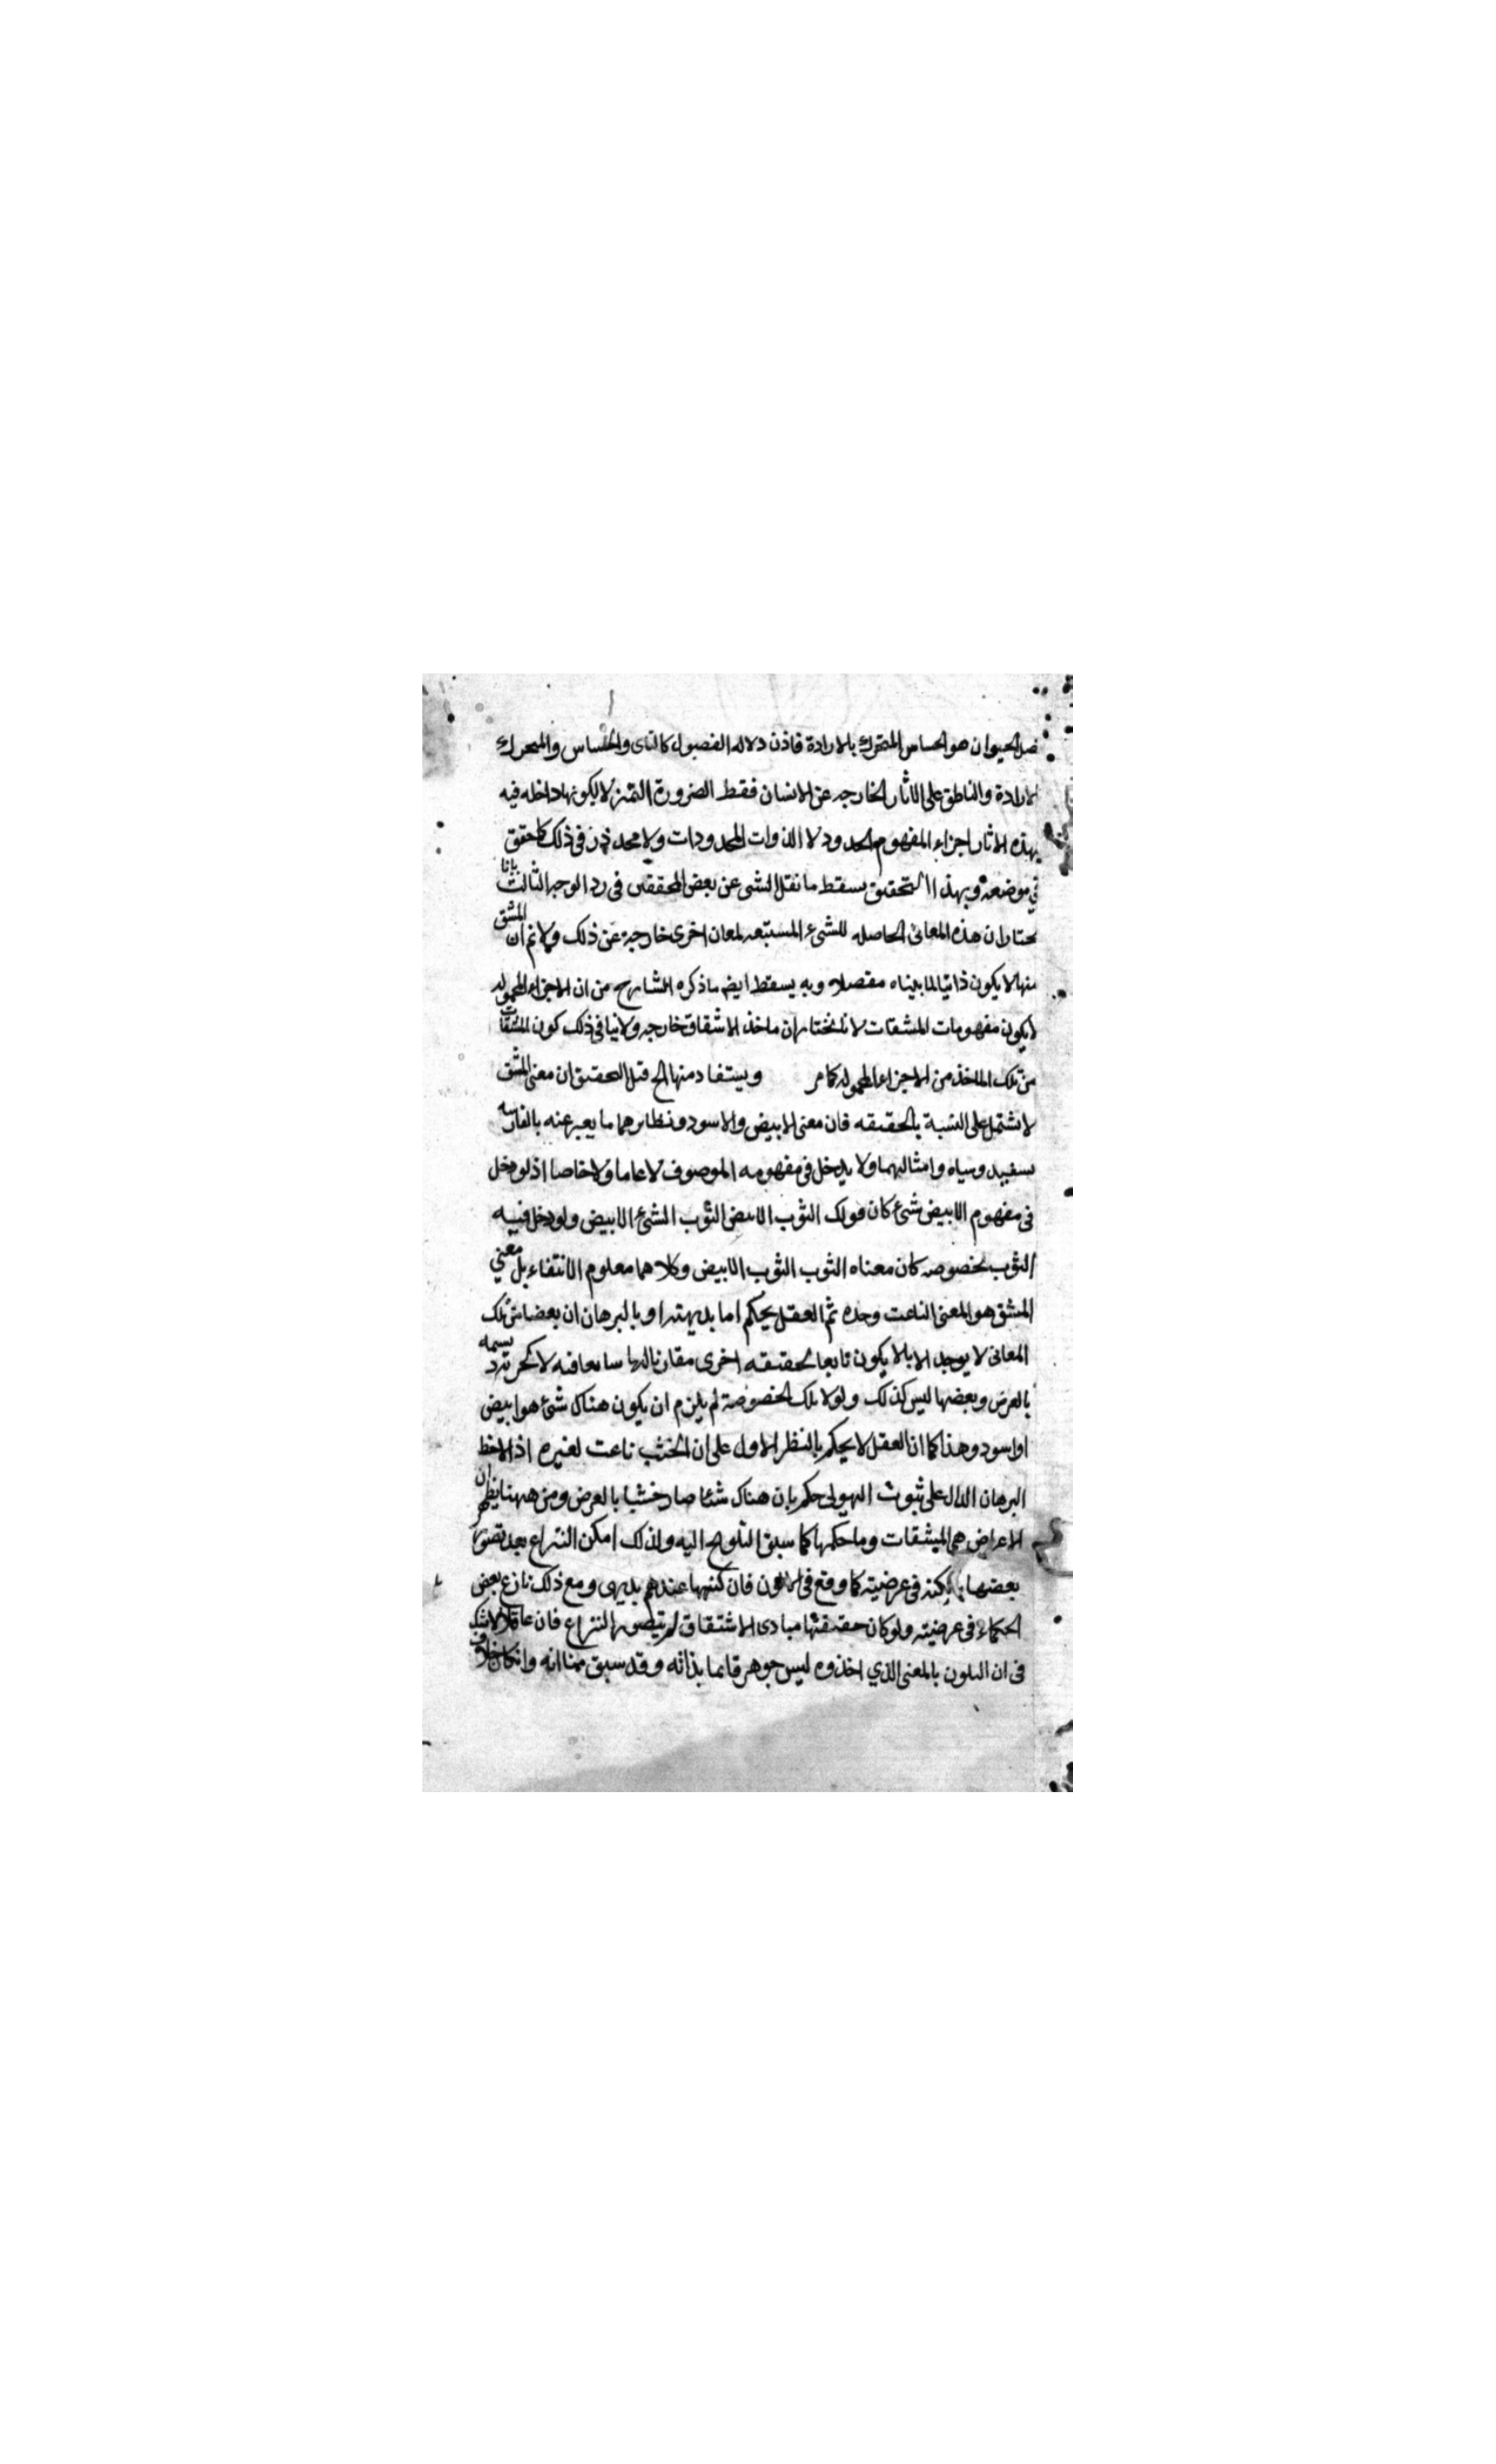 فصل الحيوان هو الحساس المتحرك بالارادة فاذن دلاله الفصول كالنامى والحساس والمتحرك
بالارادة والناطق على الاثار الخارجه عن الانسان فقط الضرورة التميز لا لكونها داخله فيه
بهذه الاثار اجزاء المفهوم الحدود لا الذوات المحدودات ولا محذور فى ذلك كما حقق
في موضعه وبهذا التحقيق يسقط ما نقل الشى عن بعض المحققين فى رد الوجه الثالث بانا
نختار ان هذه المعانى الحاصله للشىء المستتبعه لمعان اخرى خارجة عن ذلك ولا نم ان المشتق
منها لا يكون ذاتيا لما بيناه مفصلا وبه يسقط ايضا ما ذكره الشارح من ان الاجزاء المحموله
لا يكون مفهومات المشتقات لانا نختار ان ماخذ الاشتقاق خارجه ولا ينافى ذلك كون المشتقات
من تلك الماخذ من الاجزاء المحموله كما مر ويستفاد منها الخ قيل التحقيق ان معنى المشتق
لا يشتمل على النسبة بالحقيقه فان معنى الابيض والاسود ونظايرهما ما يعبر عنه بالفارسيه
بسفيد وسياه وامثالهما ولا يدخل فى مفهومه الموصوف لا عاما ولا خاصا اذ لو دخل
فى مفهوم الابيض شىء كان قولك الثوب الابيض الثوب الشىء الابيض ولو دخل فيه
الثوب بخصوصه كان معناه الثوب الثوب الابيض وكلاهما معلوم الانتفاء بل معني
المشتق هو المعنى الناعت وحده ثم العقل يحكم اما بديهة او بالبرهان ان بعضا من تلك
المعانى لا يوجد الا بان يكون تابعا لحقيقه اخرى مقارنا لها
بالعرض وبعضها ليس كذلك ولولا تلك الخصوصة لم يلزم ان يكون هناك شىء هو ابيض
او اسود وهذا كما ان العقل لا يحكم بالنظر الاول على ان الخشب ناعت لغيره اذا لاحظ
البرهان الدال على ثبوت الهيولى حكم بان هناك شئا صار خشبا بالعرض ومن ههنا يظهر ان
الاعراض هى المشتقات وما حكمها كما سبق التلويح اليه ولذلك امكن النزاع بعد تصور
بعضها بالكنه فى عرضيته كما وقع فى الالوان فان كنهها عندهم بديهى ومع ذلك نازع بعض
الحكماء فى عرضيته ولو كان حقيقتها مبادى الاشتقاق لم يتصور النزاع فان عاقلا لا يشك
فى ان اللون بالمعنى الذي اخذوه ليس جوهر قايما بذاته وقد سبق منا انه وان كان خلاف